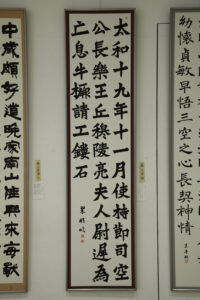 幼懷貞敏早悟三空之心長契神情
太和十九年十一月使持節司空
公長樂王丘穆陵亮夫人尉遲為
亡息牛橛請工鏤石
中歲頗好道晚家南山陲興來每獨